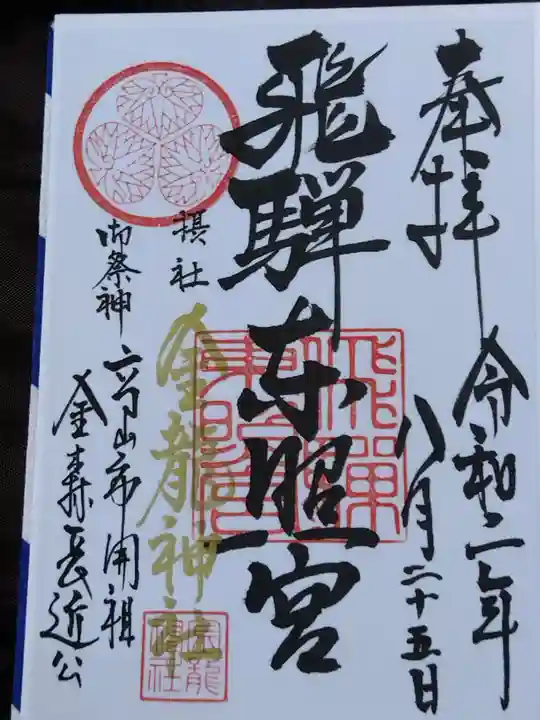 奉拝
令和二年
八月二十五日
飛騨东照宮
飛騨東照宮
摂社
金龍神社
金龍神社
御祭神
高山市開祖
金森長近公